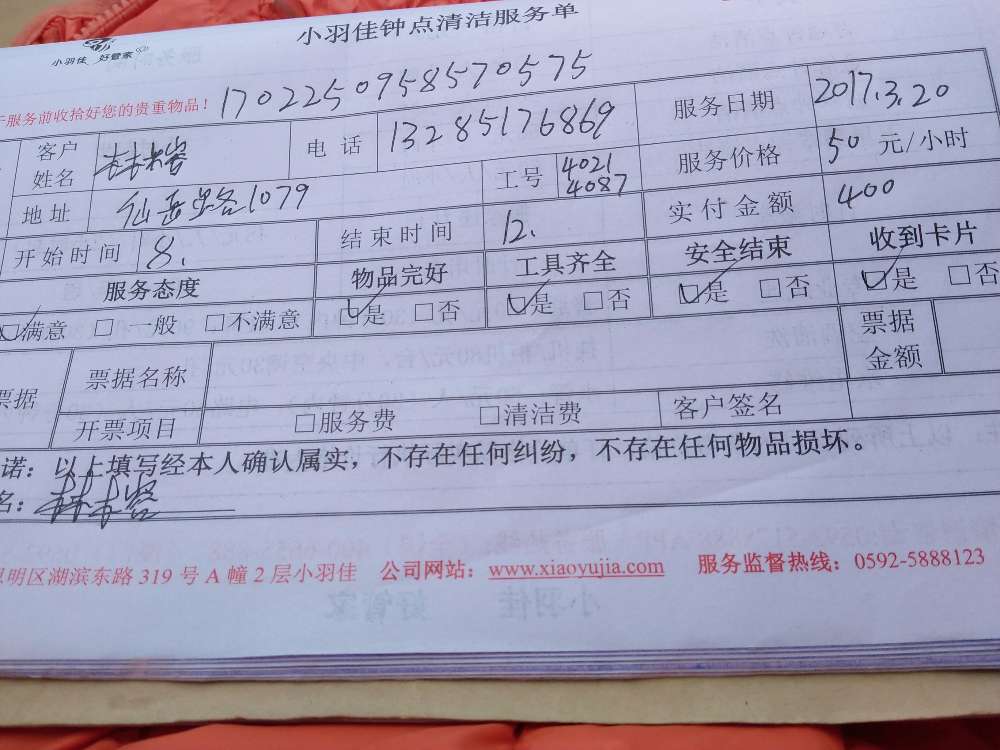 小羽佳 好管家
小羽佳钟点清洁服务单
于服务前收拾好您的贵重物品! 1702250958570575
客户姓名 电话 13285176869 服务日期 2017.3.20
地址 仙岳路1079 工号 4021 4087 服务价格 50 元/小时
开始时间 8. 结束时间 12. 实付金额 400
服务态度 物品完好 工具齐全 安全结束 收到卡片
☑满意 □一般 □不满意 ☑是 □否 ☑是 □否 ☑是 □否 ☑是 □否
票据 票据名称 票据金额
开票项目 □服务费 □清洁费 客户签名
诺:以上填写经本人确认属实,不存在任何纠纷,不存在任何物品损坏。
名:
明区湖滨东路 319 号 A 幢 2 层小羽佳 公司网站:www.xiaoyujia.com 服务监督热线:0592-5888123